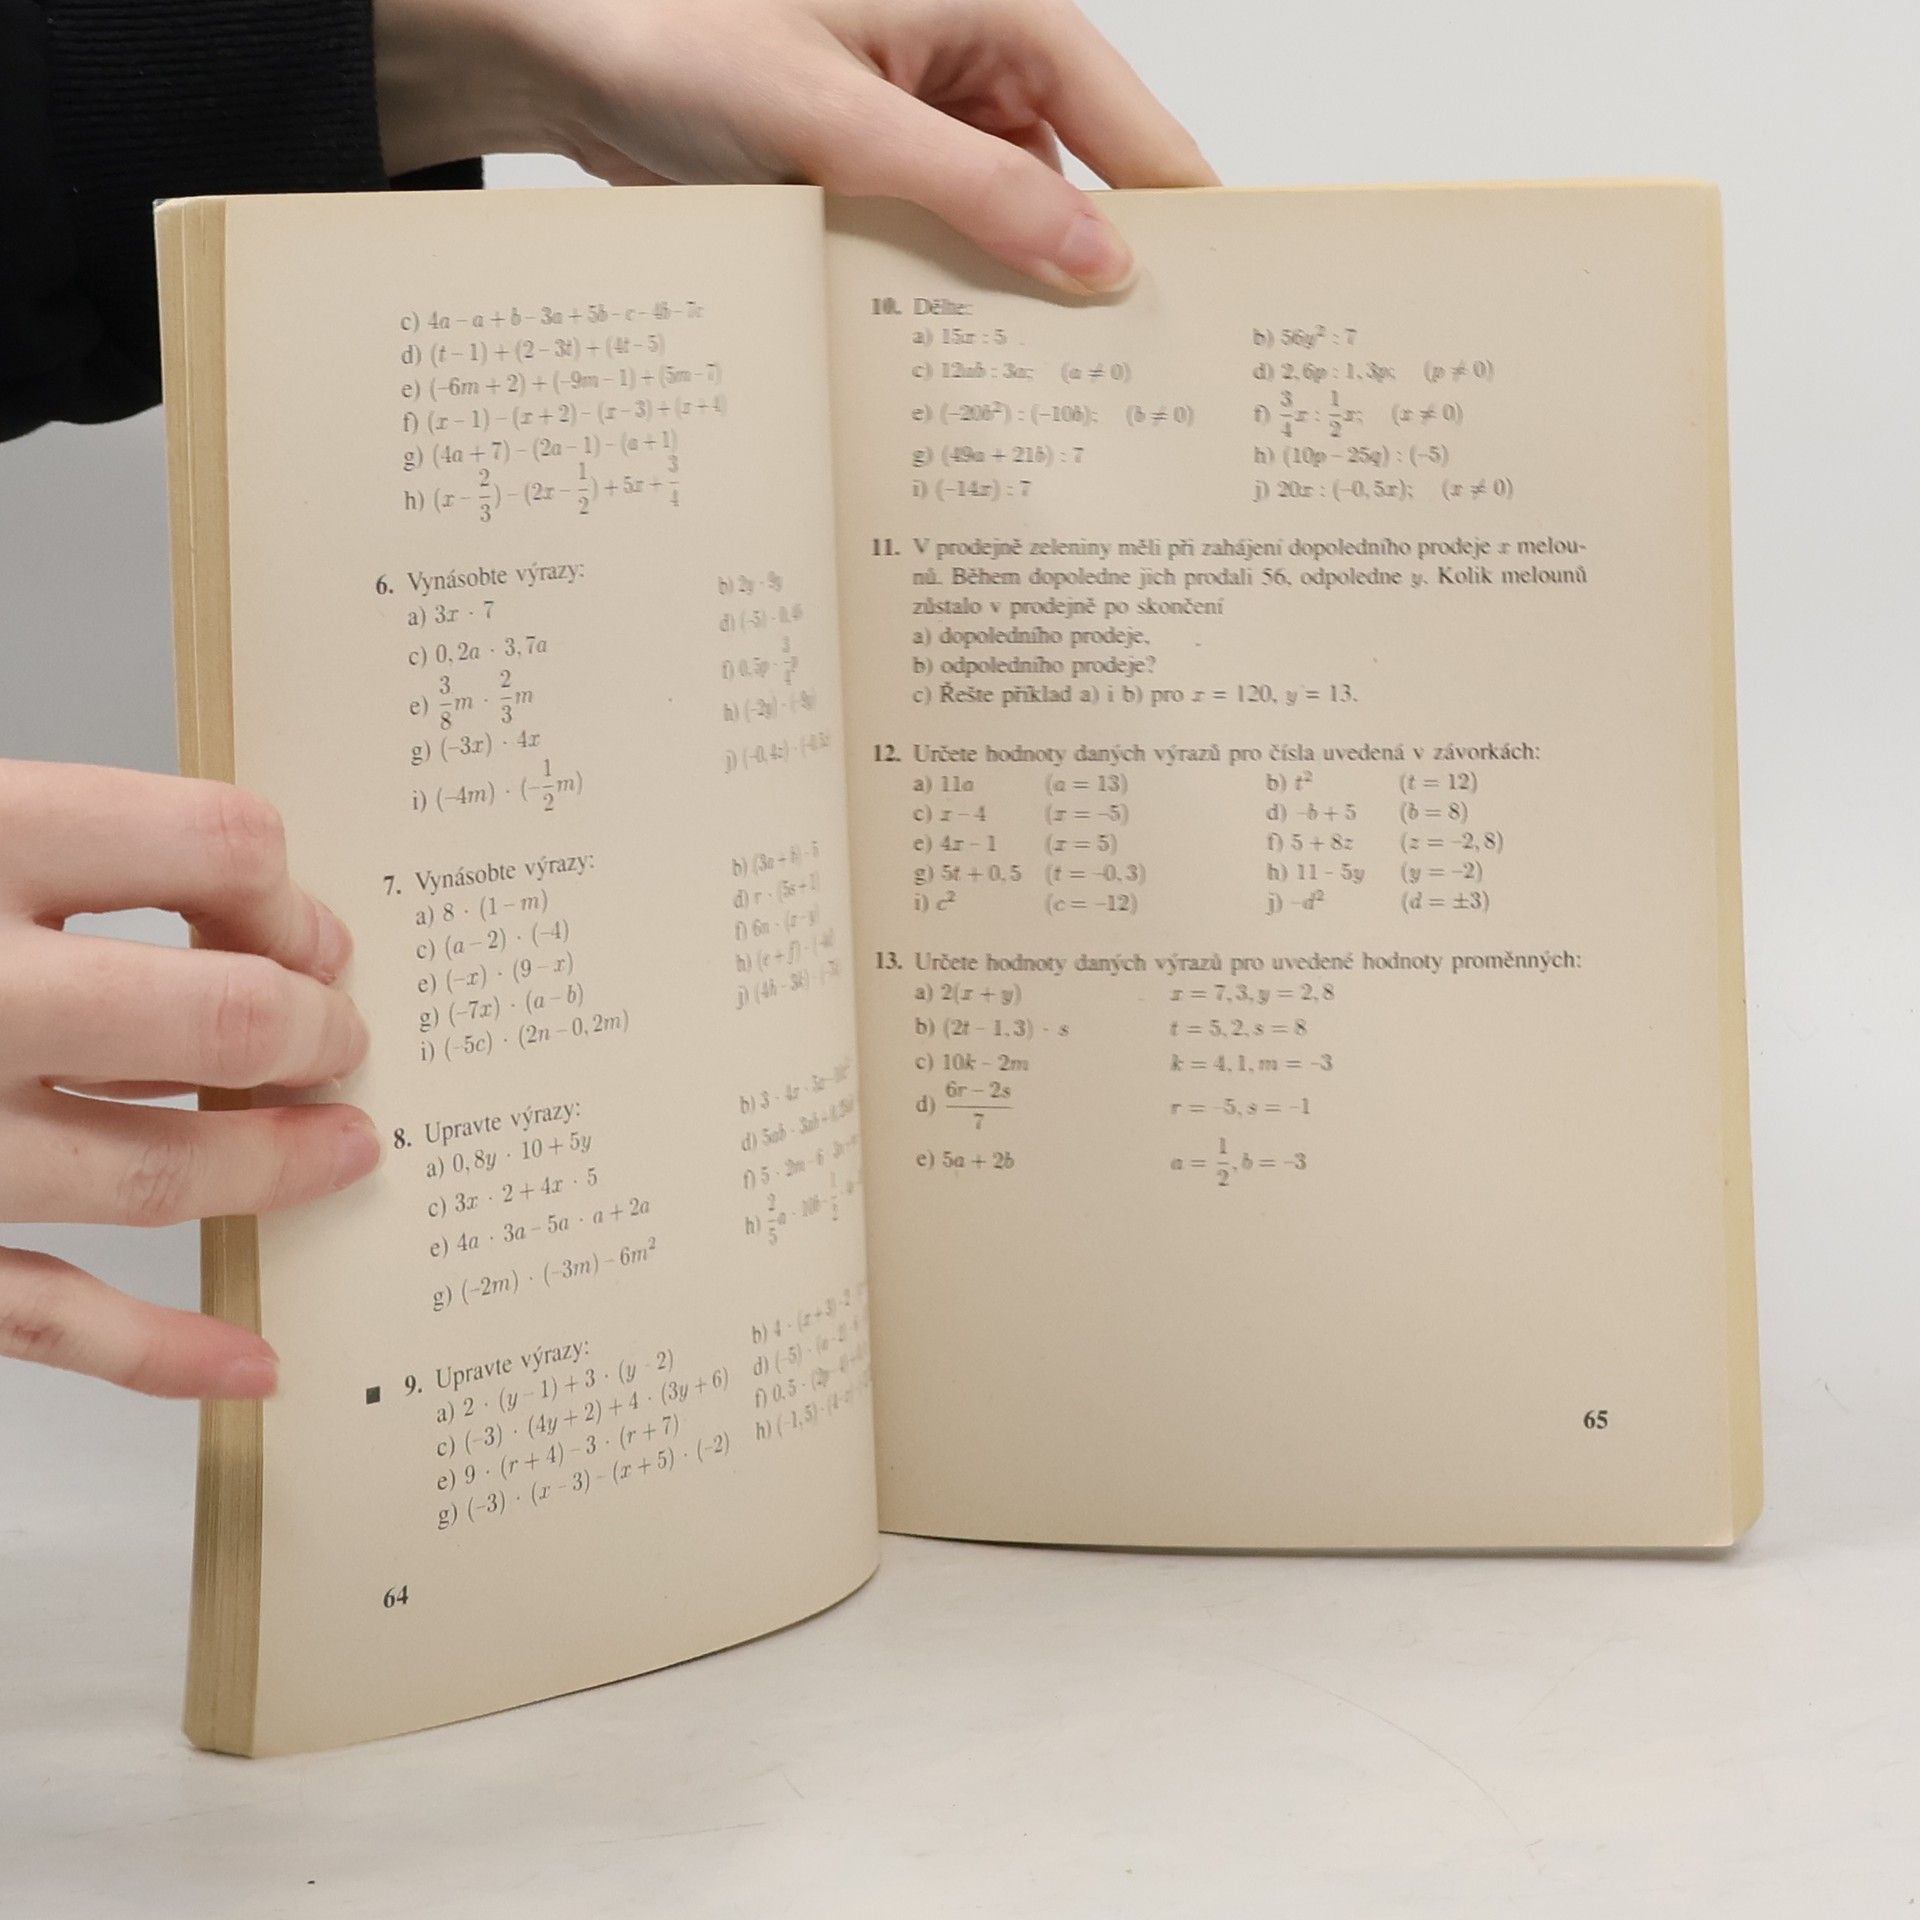 c) 4a – a + b – 3a + 5b – c – 4b – 7c
d) (t – 1) + (2 – 3t) + (4t – 5)
e) (–6m + 2) + (–9m – 1) + (5m – 7)
f) (x – 1) – (x + 2) – (x – 3) + (x + 4)
g) (4a + 7) – (2a – 1) – (a + 1)
h) (x – 2/3) – (2x – 1/2) + 5x + 3/4
6. Vynásobte výrazy:
a) 3x · 7 b) 2y · 9y
c) 0,2a · 3,7a d) (–5) ·
e) 3/8 m · 2/3 m f) 0,5p · 3/4 p
g) (–3x) · 4x h) (–2y) · (–9y)
i) (–4m) · (–1/2 m) j) (–0,4z) ·
7. Vynásobte výrazy:
a) 8 · (1 – m) b) (3a + b) · 5
c) (a – 2) · (–4) d) r · (5s + 1)
e) (–x) · (9 – x) f) 6n · (x – y)
g) (–7x) · (a – b) h) (e + f) ·
i) (–5c) · (2n – 0,2m) j) (4h – 3k) ·
8. Upravte výrazy:
a) 0,8y · 10 + 5y b) 3 · 4x ·
c) 3x · 2 + 4x · 5 d) 5ab · 3ab +
e) 4a · 3a – 5a · a + 2a f) 5 · 2m – 6 ·
g) (–2m) · (–3m) – 6m² h) 2/5 a · 10b –
9. Upravte výrazy:
a) 2 · (y – 1) + 3 · (y – 2) b) 4 · (x + 3) – 2
c) (–3) · (4y + 2) + 4 · (3y + 6) d) (–5) · (a – 2) –
e) 9 · (r + 4) – 3 · (r + 7) f) 0,5 ·
g) (–3) · (x – 3) – (x + 5) · (–2) h) (–1,5) ·
64
10. Dělte:
a) 15x : 5 b) 56y² : 7
c) 12ab : 3a; (a ≠ 0) d) 2,6p : 1,3p; (p ≠ 0)
e) (–20b²) : (–10b); (b ≠ 0) f) 3/4 x : 1/2 x; (x ≠ 0)
g) (49a + 21b) : 7 h) (10p – 25q) : (–5)
i) (–14x) : 7 j) 20x : (–0,5x); (x ≠ 0)
11. V prodejně zeleniny měli při zahájení dopoledního prodeje x melou-
nů. Během dopoledne jich prodali 56, odpoledne y. Kolik melounů
zůstalo v prodejně po skončení
a) dopoledního prodeje,
b) odpoledního prodeje?
c) Řešte příklad a) i b) pro x = 120, y = 13.
12. Určete hodnoty daných výrazů pro čísla uvedená v závorkách:
a) 11a (a = 13) b) t² (t = 12)
c) x – 4 (x = –5) d) –b + 5 (b = 8)
e) 4x – 1 (x = 5) f) 5 + 8z (z = –2,8)
g) 5t + 0,5 (t = –0,3) h) 11 – 5y (y = –2)
i) c² (c = –12) j) –d² (d = ±3)
13. Určete hodnoty daných výrazů pro uvedené hodnoty proměnných:
a) 2(x + y) x = 7,3, y = 2,8
b) (2t – 1,3) · s t = 5,2, s = 8
c) 10k – 2m k = 4,1, m = –3
d) (6r – 2s)/7 r = –5, s = –1
e) 5a + 2b a = 1/2, b = –3
65